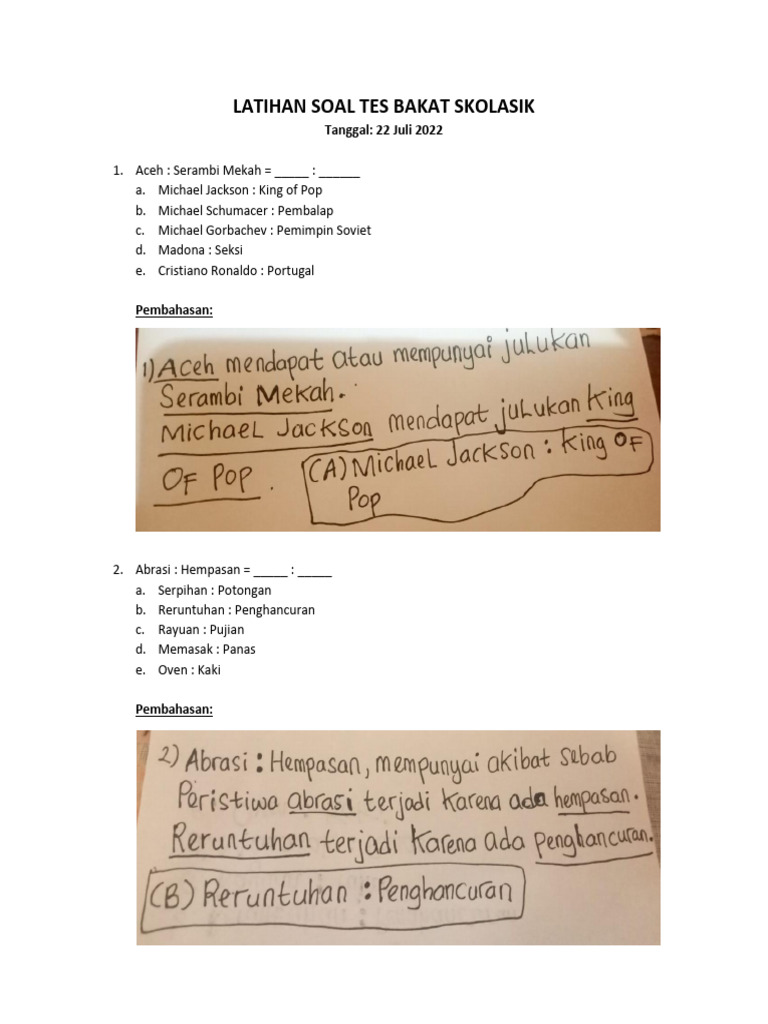 LATIHAN SOAL TES BAKAT SKOLASIK
Tanggal: 22 Juli 2022
1. Aceh : Serambi Mekah = _____ : ______
a. Michael Jackson : King of Pop
b. Michael Schumacer : Pembalap
c. Michael Gorbachev : Pemimpin Soviet
d. Madona : Seksi
e. Cristiano Ronaldo : Portugal
Pembahasan:
1) Aceh mendapat atau mempunyai julukan
Serambi Mekah.
Michael Jackson mendapat julukan King
Of Pop.
(A) Michael Jackson : King OF
Pop
2. Abrasi : Hempasan = _____ : _____
a. Serpihan : Potongan
b. Reruntuhan : Penghancuran
c. Rayuan : Pujian
d. Memasak : Panas
e. Oven : Kaki
Pembahasan:
2) Abrasi : Hempasan, mempunyai akibat sebab
Peristiwa abrasi terjadi karena ada hempasan.
Reruntuhan terjadi karena ada penghancuran.
(B) Reruntuhan : Penghancuran